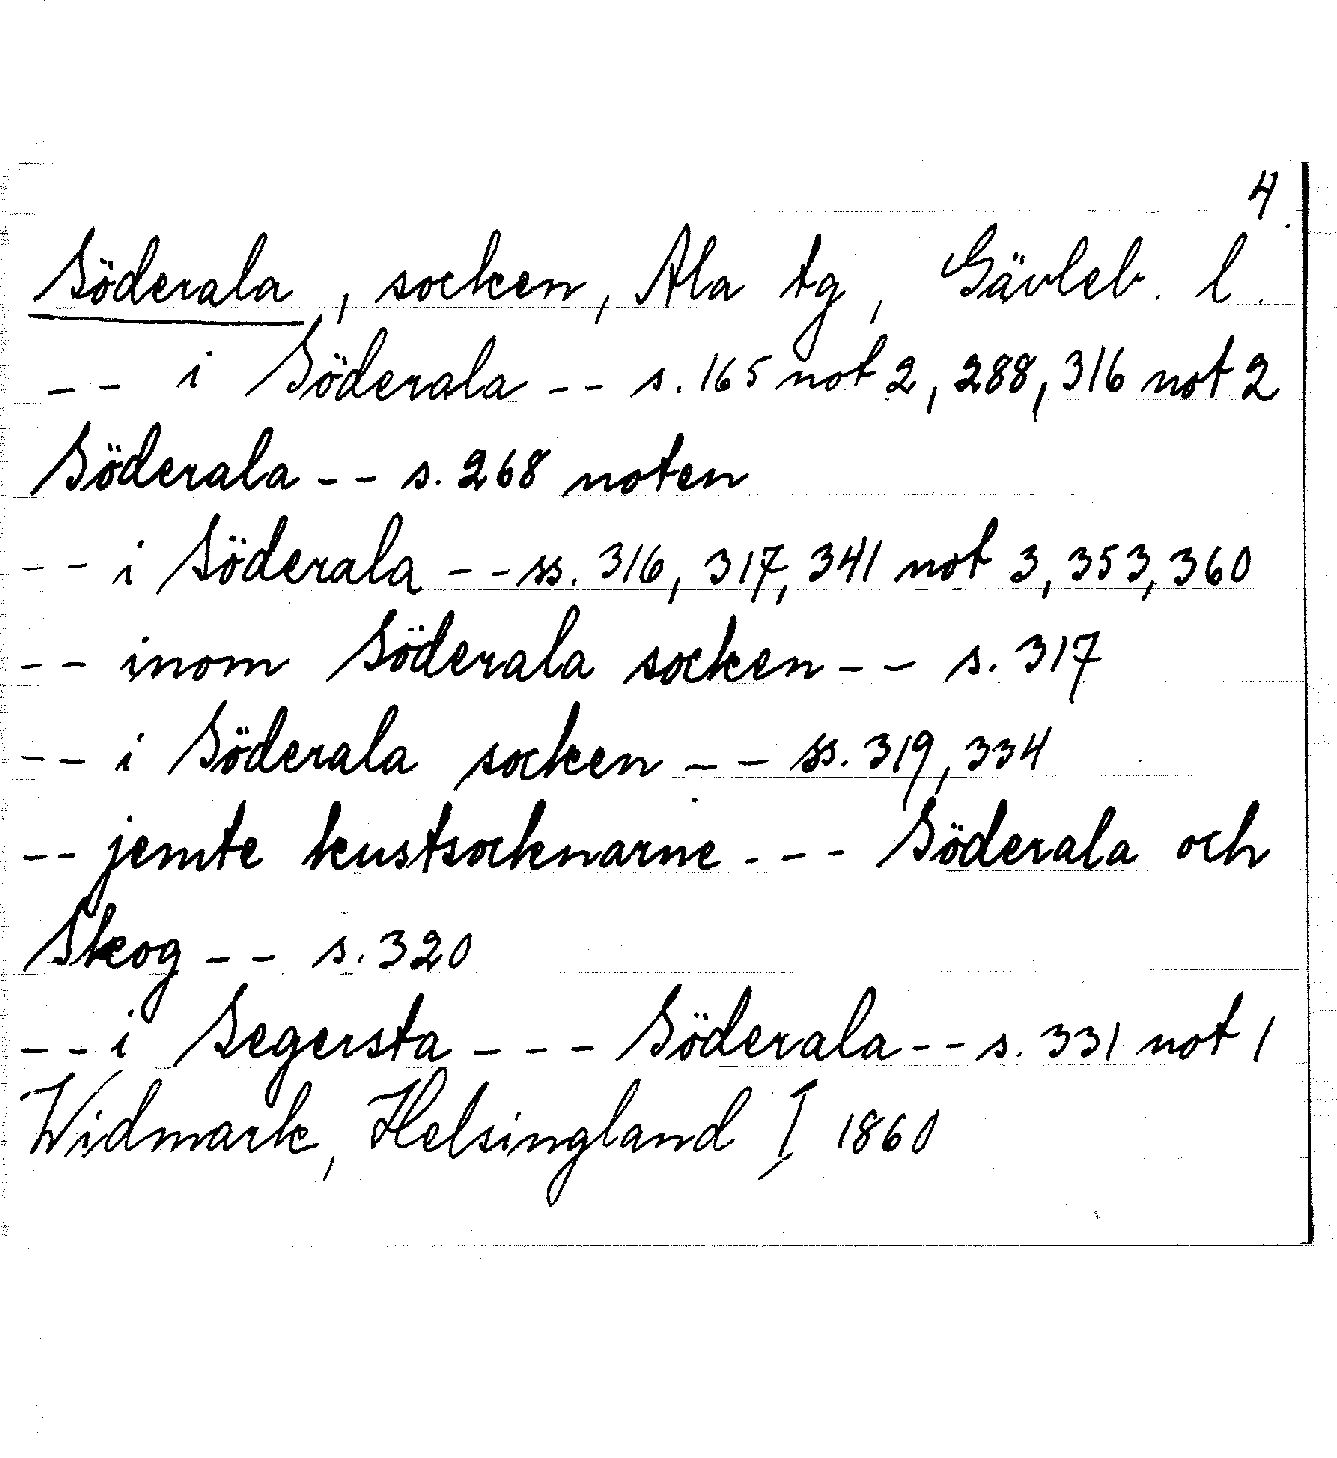 4.
Söderala, socken, Ala tg, Gävleb. l.
-- i Söderala -- s. 165 not 2, 288, 316 not 2
Söderala -- s. 268 noten
-- i Söderala -- ss. 316, 317, 341 not 3, 353, 360
-- inom Söderala socken -- s. 317
-- i Söderala socken -- ss. 319, 334
-- jemte kustsocknarne --- Söderala och
Skog -- s. 320
-- i Segersta --- Söderala -- s. 331 not 1
Widmark, Helsingland I 1860